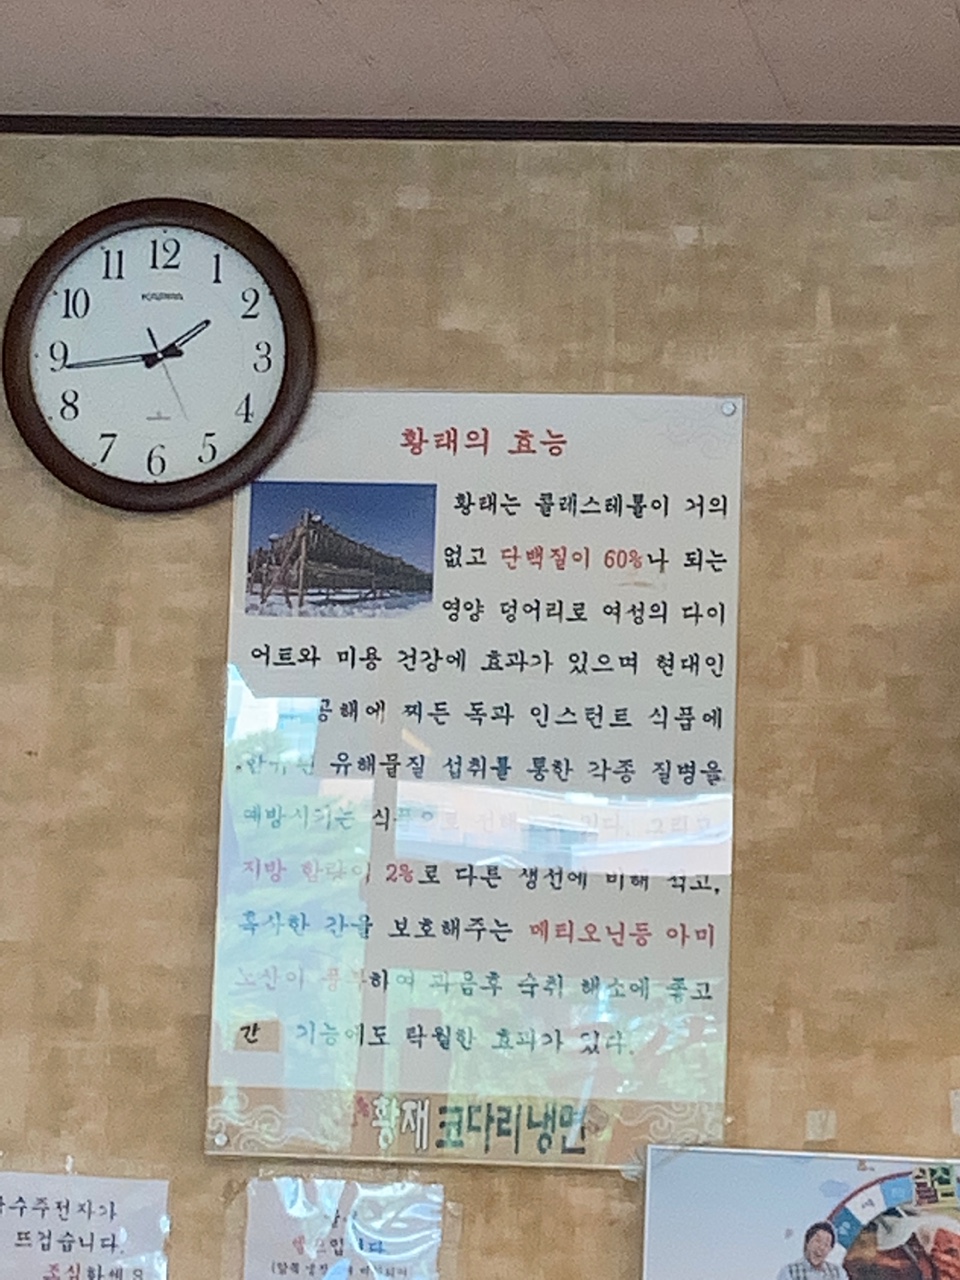 12
11
1
10
2
9
3
8
4
7
5
6
황태의 효능
황태는 콜레스테롤이 거의
없고 단백질이 60%나 되는
영양 덩어리로 여성의 다이
어트와 미용 건강에 효과가 있으며 현대인
공해에 찌든 독과 인스턴트 식품에
유해물질 섭취를 통한 각종 질병을
예방시키는 식품으로
지방 함량이 2%로 다른 생선에 비해 적고,
혹사한 간을 보호해주는 메티오닌등 아미
노산이 풍부하여 과음후 숙취 해소에 좋고
간 기능에도 탁월한 효과가 있다.
황재 코다리냉면
뜨겁습니다.